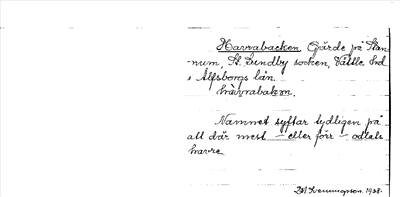 Havrabacken. Gärde på Stan-
num, St. Lundby socken, Vättle hd
i Älfsborgs län.
hàvrabaken.
Namnet syftar tydligen på
att där mest – eller förr – odlats
havre.
1938.